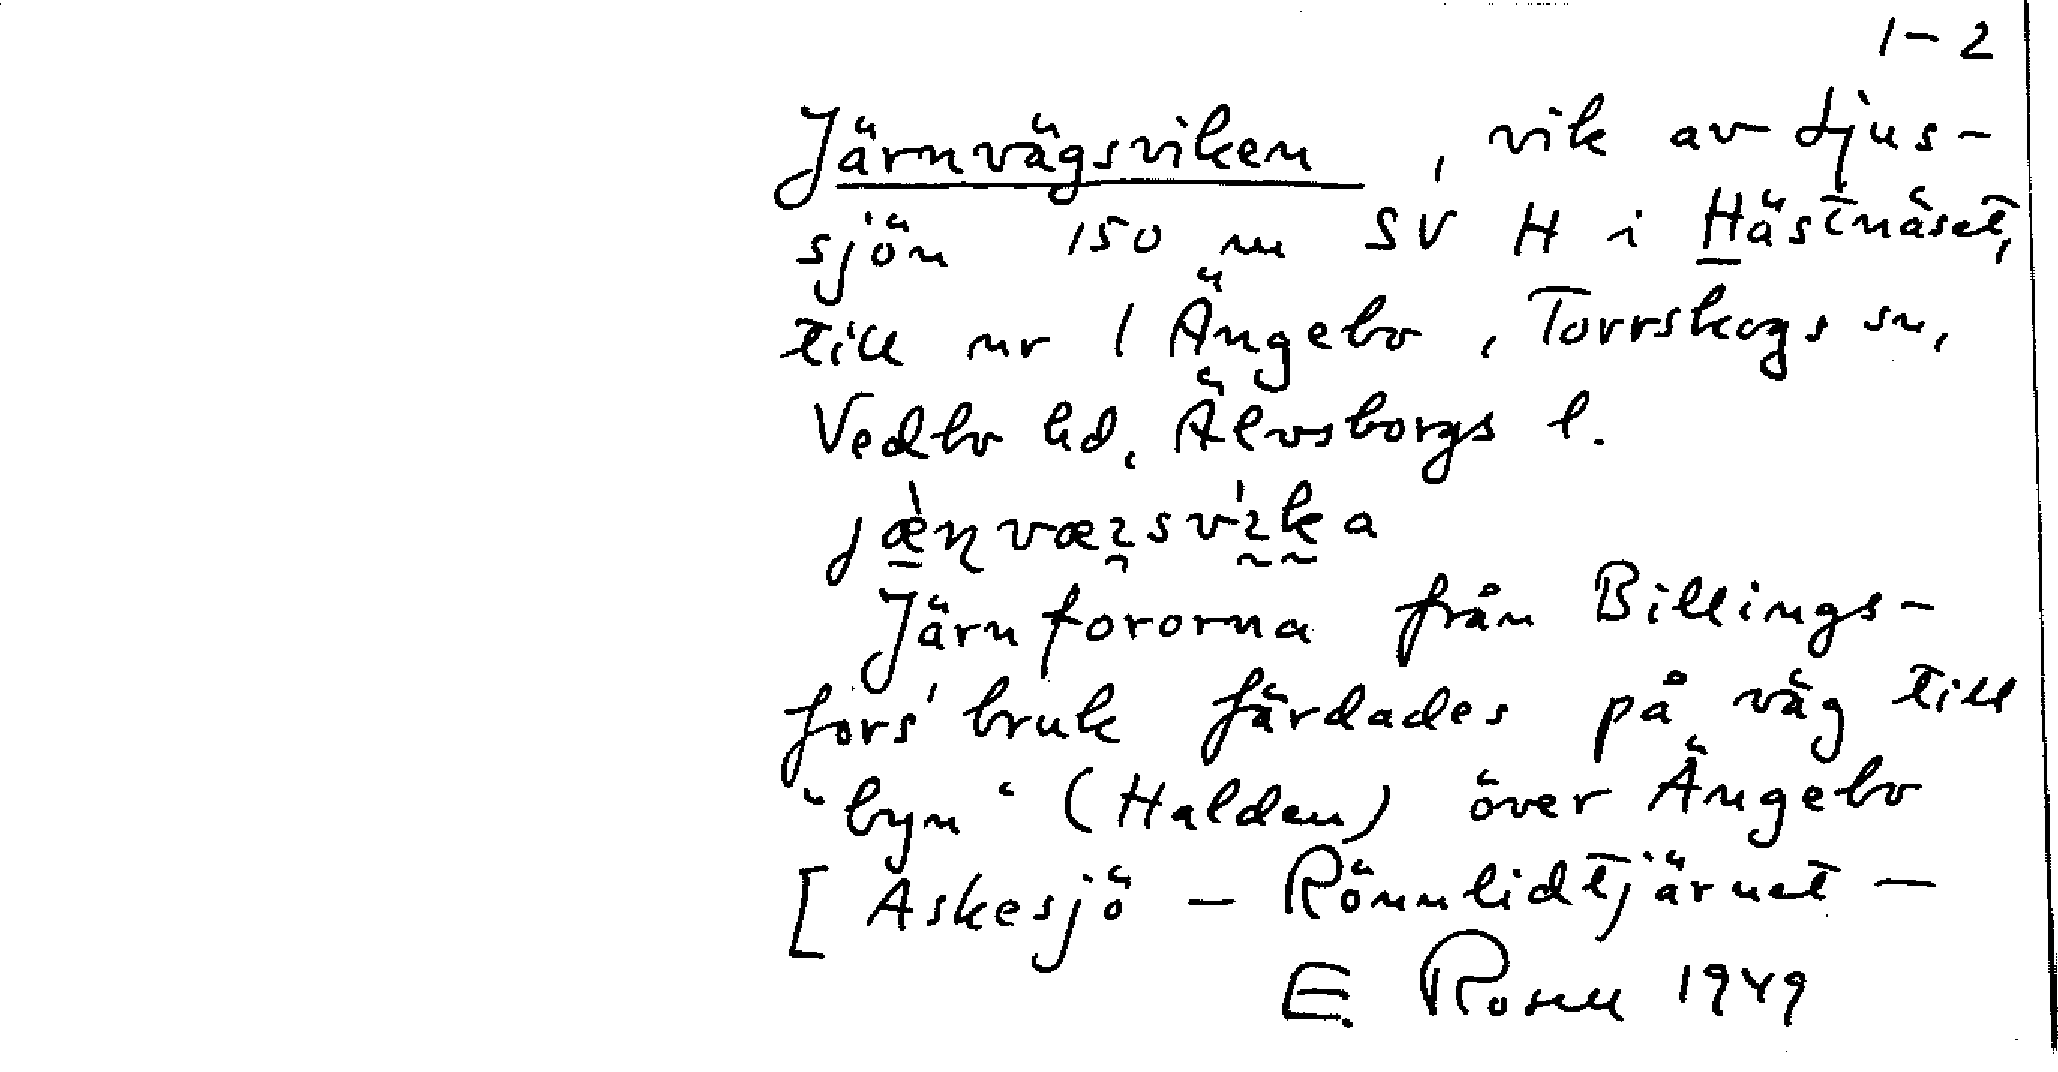 1-2
Järnvägsviken, vik av Ljus-
sjön 150 m SV H i Hästnäset,
till nr 1 Ängebo, Torrskogs sn,
Vedbo hd, Älvsborgs l.
Järnfororna från Billings-
fors' bruk färdades på väg till
"byn" (Halden) över Ängebo
[Askesjö - Rönnlidtjärnet -
E. Rosell 1949